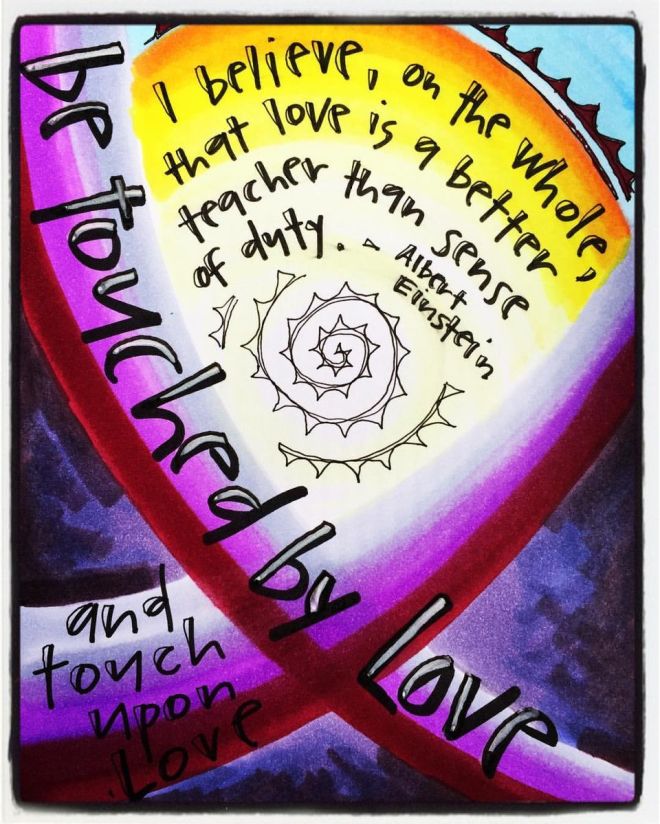 I believe, on the whole,
that love is a better
teacher than sense
of duty. - Albert
Einstein
be touched by Love
and
touch
upon
Love